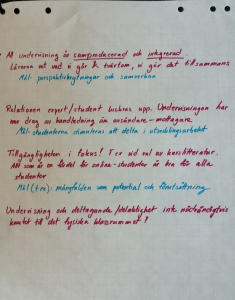 All undervisning är samproducerad och integrerad.
Läraren vet vad vi gör & tvärtom, vi gör det tillsammans
Mål: perspektivbrytningar och samverkan
Relationen expert/student luckras upp. Undervisningen har
mer drag av handledning än avsändare-mottagare
Mål: studenterna stimuleras att delta i utvecklingsarbetet
Tillgängligheten i fokus! T ex vid val av kurslitteratur.
som är en fördel för online-studenter är bra för alla
studenter
Mål (t ex): mångfalden som potential och förutsättning
Undervisning och deltagande/delaktighet inte nödvändigtvis
knutet till det fysiska klassrummet!